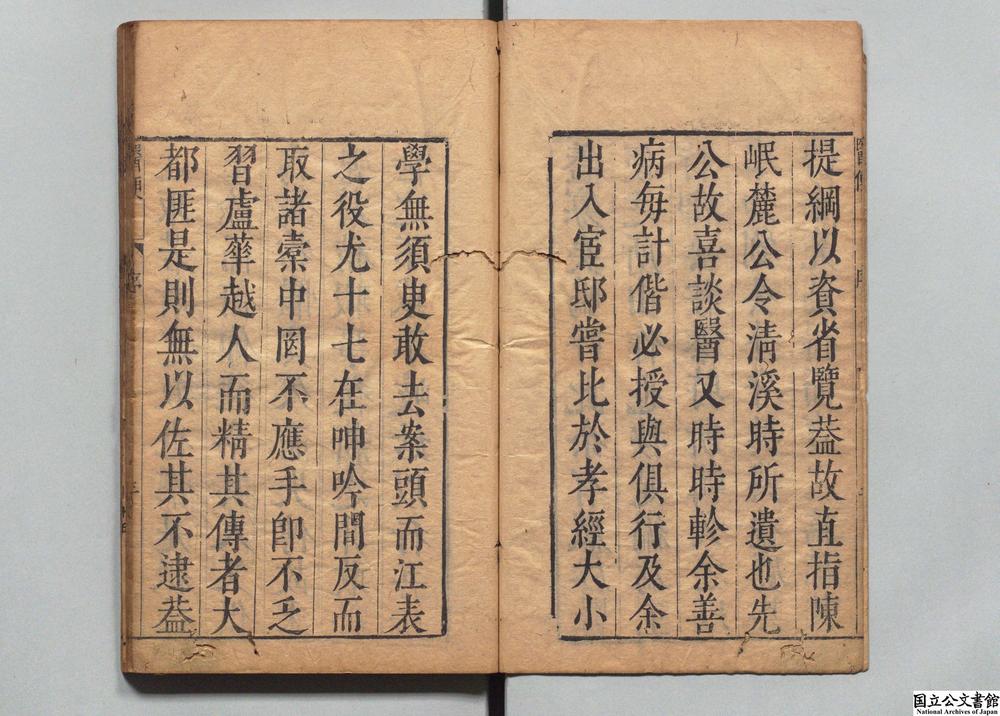 提綱以資省覽葢故直指陳
岷麓公令清溪時所遺也先
公故喜談醫又時時軫余善
病每計偕必授與俱行及余
出入宦邸嘗比於孝經大小
學無須臾敢去案頭而江表
之役尤十七在呻吟間反而
取諸橐中罔不應手卽不乏
習盧華越人而精其傳者大
都匪是則無以佐其不逮葢
国立公文書館
National Archives of Japan